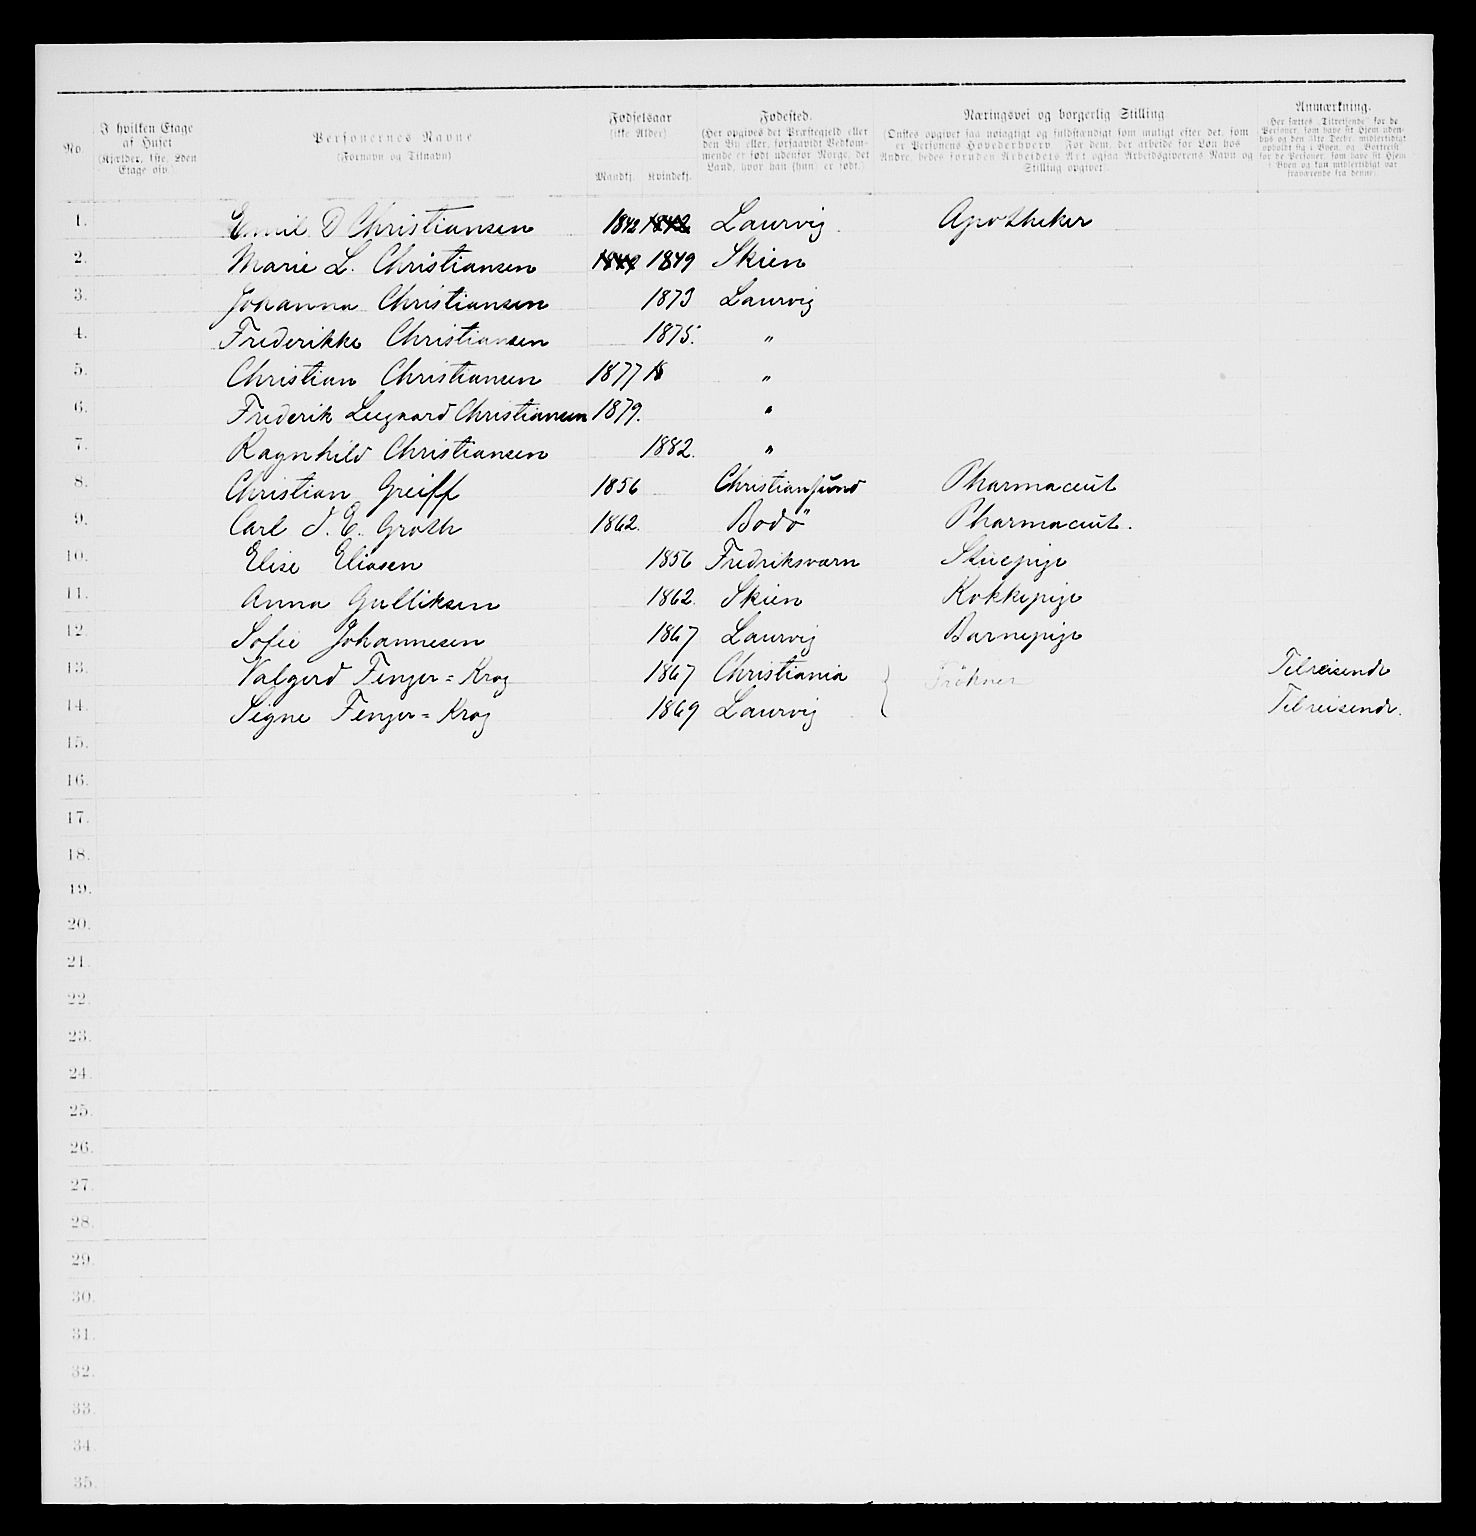 No.
I hvilken Etage af Huset (Kjælder, 1ste, 2den Etage osv.)
Personernes Navne (Fornavn og Tilnavn)
Fødselsaar (ikke Alder) Mandkj. Kvindekj.
Fødested. (Her opgives det Præstegjeld eller den By eller, forsaavidt Vedkommende er født udenfor Norge, det Land, hvor han (hun) er født.)
Næringsvei og borgerlig Stilling (Ønskes opgivet saa nøiagtigt og fuldstændigt som muligt efter det, som er Personens Hovederhverv. For dem, der arbeide for Løn hos Andre, bedes foruden Arbeidets Art ogsaa Arbeidsgiverens Navn og Stilling opgivet.)
Anmærkning. (Her sættes „Tilreisende“ for de Personer, som have sit Hjem udenbys og den 31te Decbr. midlertidigt opholdt sig i Byen, og „Bortreist“ for de Personer, som have sit Hjem i Byen og kun midlertidigt var fraværende fra denne.)
1. Emil D Christiansen 1842 1842 Laurvig. Apotheker
2. Marie L. Christiansen 1849 1849 Skien
3. Johanna Christiansen 1873 Laurvig
4. Frederikke Christiansen 1875. "
5. Christian Christiansen 1877 18 "
6. Frederik Leegaard Christiansen 1879. "
7. Ragnhild Christiansen 1882. "
8. Christian Greiff 1856 Christiansund Pharmaceut
9. Carl J. E. Groth 1862. Bodö Pharmaceut.
10. Elise Eliasen 1856 Fredriksværn Stuepige
11. Anna Gulliksen 1862. Skien Kokkepige
12. Sofie Johannesen 1867 Laurvig Barnepige
13. Valgerd Fenger=Krog 1867 Christiania { Fröknner Tilreisende
14. Signe Fenger=Krog 1869 Laurvig Tilreisende.
15.
16.
17.
18.
19.
20.
21.
22.
23.
24.
25.
26.
27.
28.
29.
30.
31.
32.
33.
34.
35.